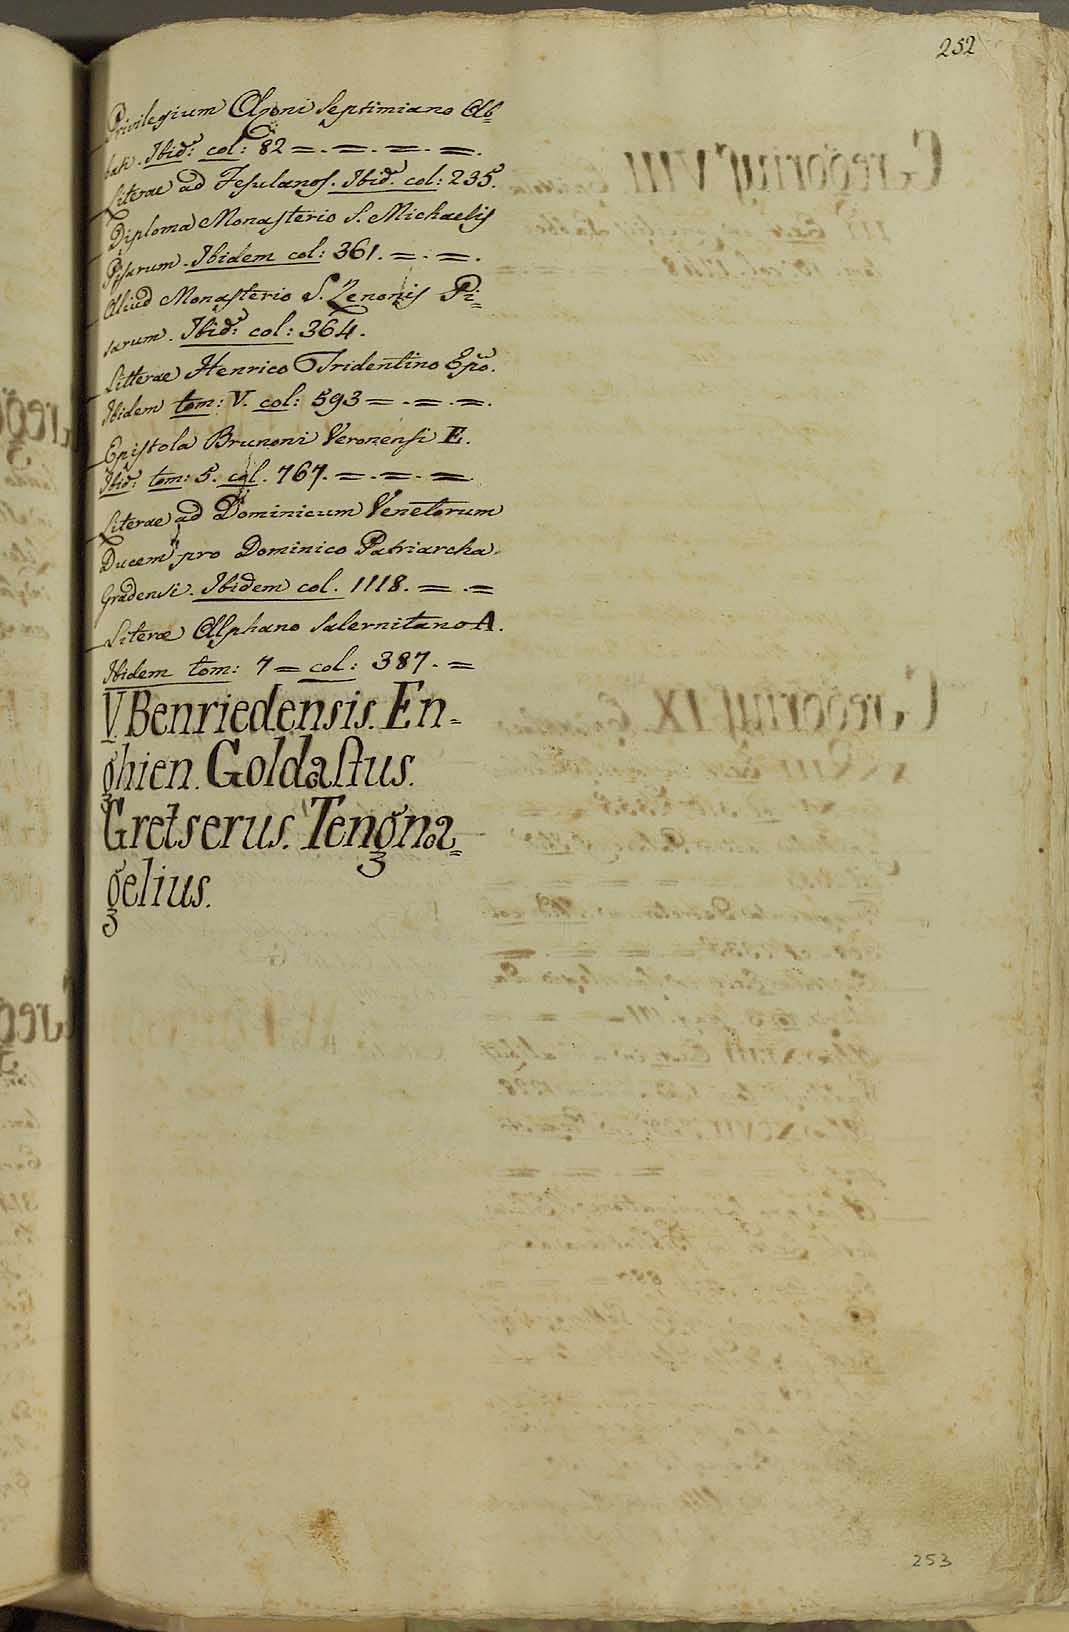 252
Privilegium Ogoni Septimiano Ab=
bati. Ibid: col: 82 = . = . = . = .
Literae ad Fesulanos. Ibid. col: 235.
Diploma Monasterio S. Michaelis
Pisarum. Ibidem col: 361. = . = .
Aliud Monasterio S. Zenonis Pi=
sarum. Ibid: col: 364.
Litterae Henrico Tridentino Epo.
Ibidem tom: V. col: 593 = . = . = .
Epistola Brunoni Veronensi E.
Ibid: tom: 5. col. 767. = . = . =
Literae ad Dominicum Venetorum
Ducem pro Dominico Patriarcha
Gradensi. Ibidem col. 1118. = . =
Literae Alphano Salernitano A.
Ibidem tom: 7 = col: 387. =
V. Benriedensis. En=
ghien. Goldastus.
Gretserus. Tengna=
gelius.
253